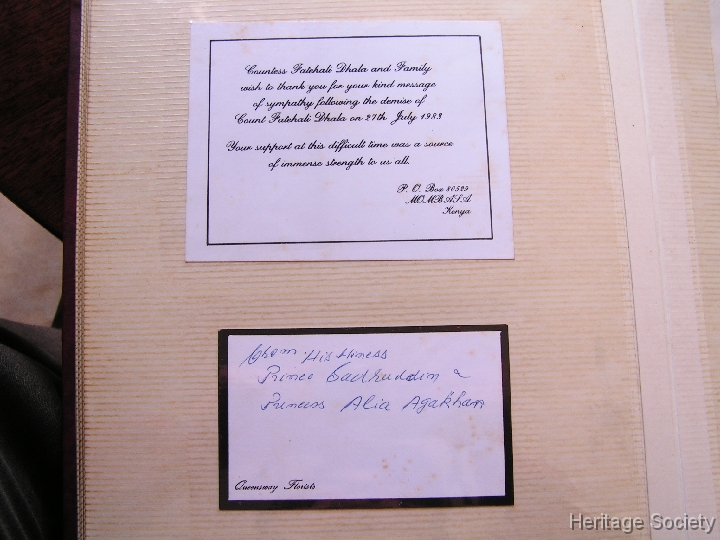 Countess Fatehali Dhala and Family
wish to thank you for your kind message
of sympathy following the demise of
Count Fatehali Dhala on 27th July 1983
Your support at this difficult time was a source
of immense strength to us all.
P. O. Box 80529
MOMBASA
Kenya
From. His Hiness
Prince Sadruddin &
Princess Alia Agakhan
Queensway Florists
Heritage Society